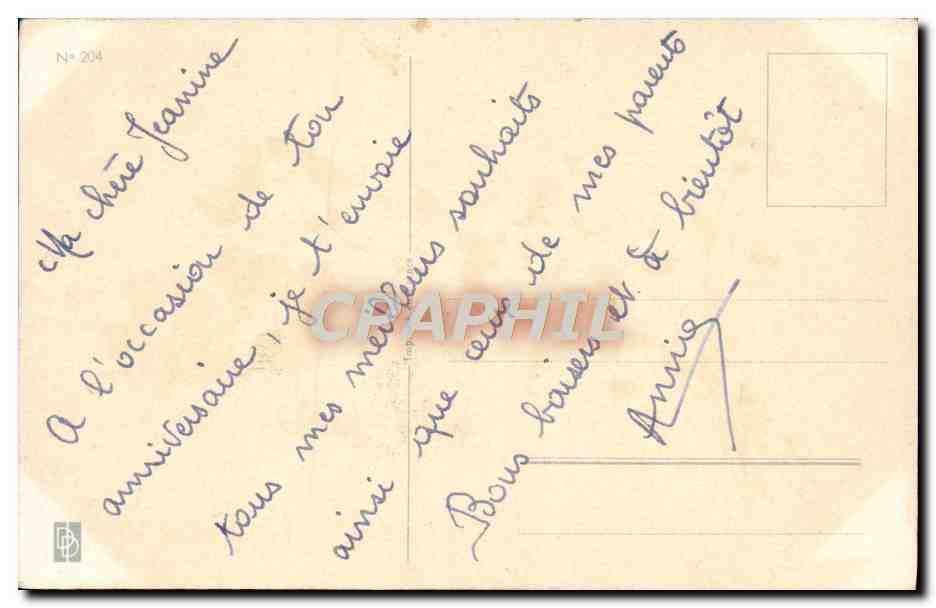 N° 204
Ma chère Jeanine
A l'occasion de ton
anniversaire, je t'envoie
tous mes meilleurs souhaits
ainsi que ceux de mes parents
Bons baisers et à bientôt
Annie
CPAPHIL